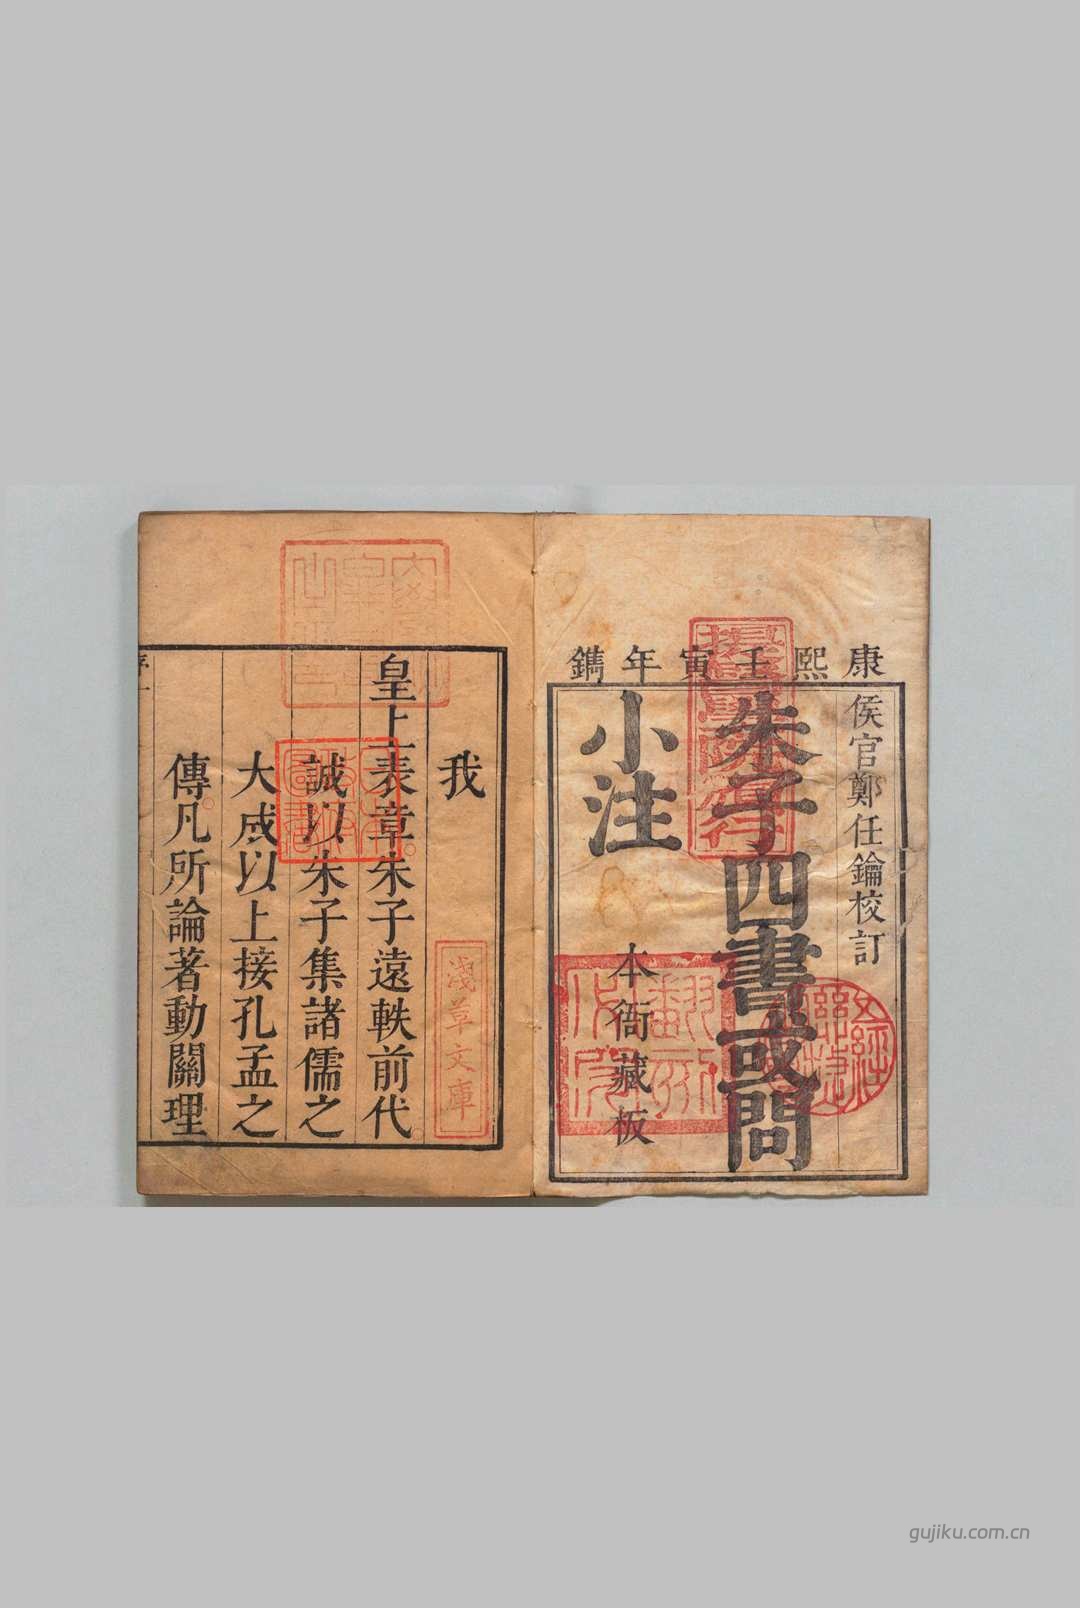 康熙壬寅年鐫
侯官鄭任鑰校訂
朱子四書或問
小注
本衙藏板
我
皇上表章朱子遠軼前代
誠以朱子集諸儒之
大成以上接孔孟之
傳凡所論著動關理
淺草文庫
gujiku.com.cn